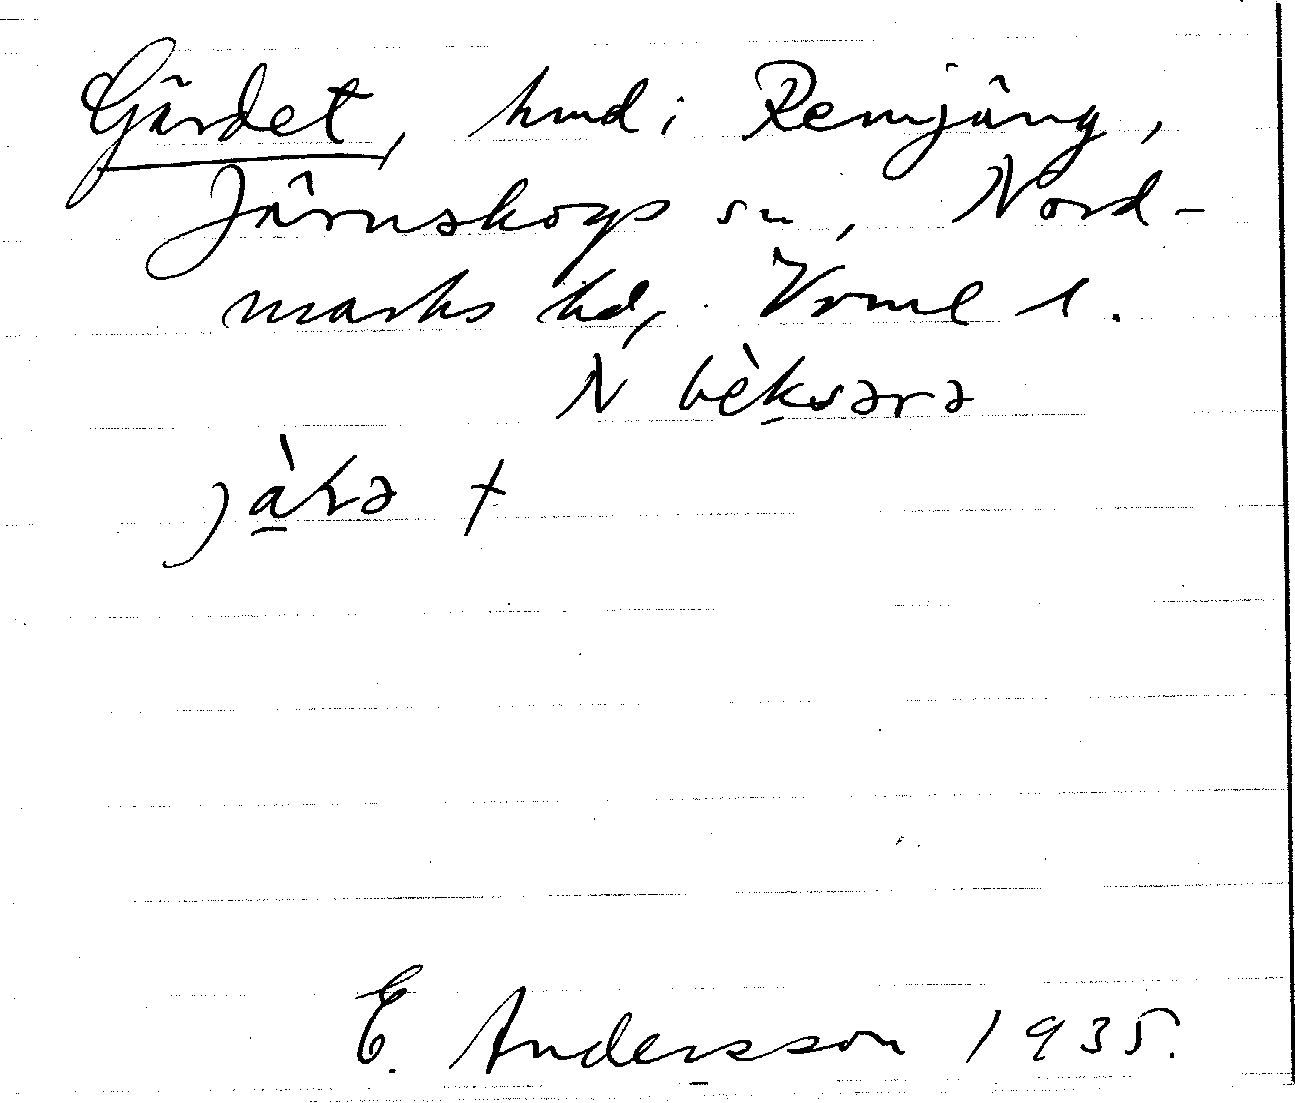 Gärdet, hmd i Remjäng,
Järnskogs sn, Nord-
marks hd, Vrml l.
N bèksərə
jàhə +
E. Andersson 1935.